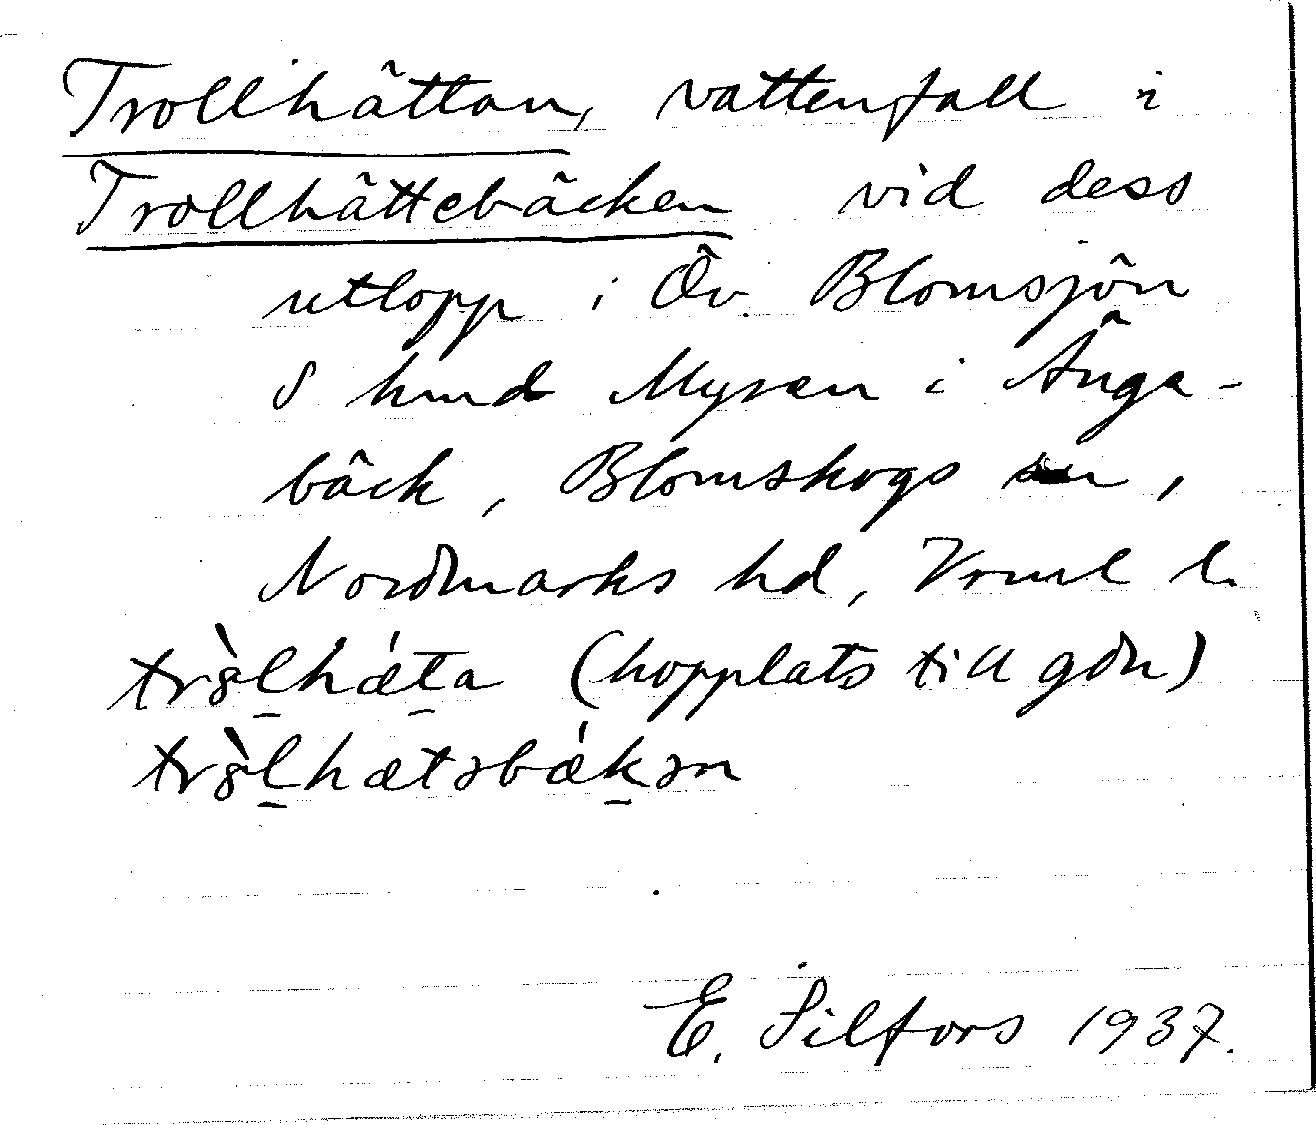 Trollhättan, vattenfall i
Trollhättebäcken vid dess
utlopp i Öv. Blomsjön
S hmd Myren i Änga-
bäck, Blomskogs sn,
Nordmarks hd, Vrml l.
trò̤l̠hǽt̠a (hopplats till gdn)
trò̤l̠hætəbǽk̠ən
E. Silfors 1937.